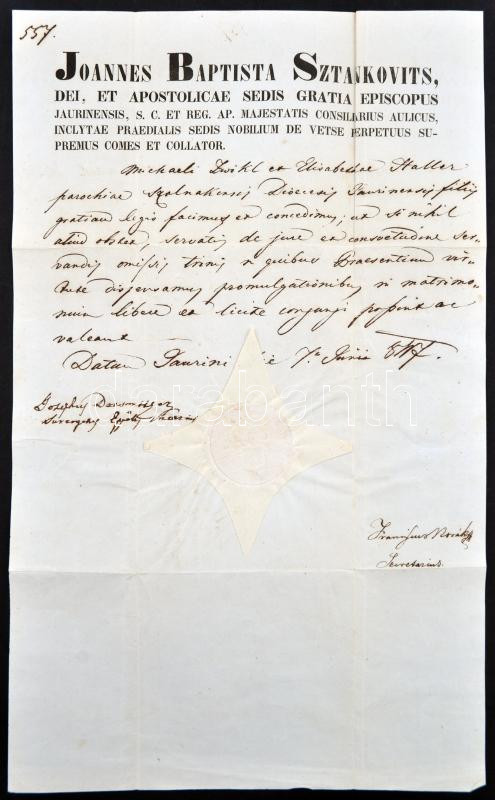 557.
JOANNES BAPTISTA SZTANKOVITS,
DEI, ET APOSTOLICAE SEDIS GRATIA EPISCOPUS
JAURINENSIS, S. C. ET REG. AP. MAJESTATIS CONSILIARIUS AULICUS,
INCLYTAE PRAEDIALIS SEDIS NOBILIUM DE VETSE PERPETUUS SU-
PREMUS COMES ET COLLATOR.
Michaeli Zwikl et Elisabethae Haller
parochiae Dioecesis Jaurinensis filiis
gratiam legis facimus et concedimus, ut si nihil
aliud obstet, servatis de jure et consvetudine ser-
vandis, omissis trinis a quibus Praesentium vir-
tute dispensamus promulgationibus in matrimo-
nium libere et licite conjungi possint ac
valeant
Datum Jaurini die 7a Junii
Josephus
Franciscus
Secretarius.
darabanth